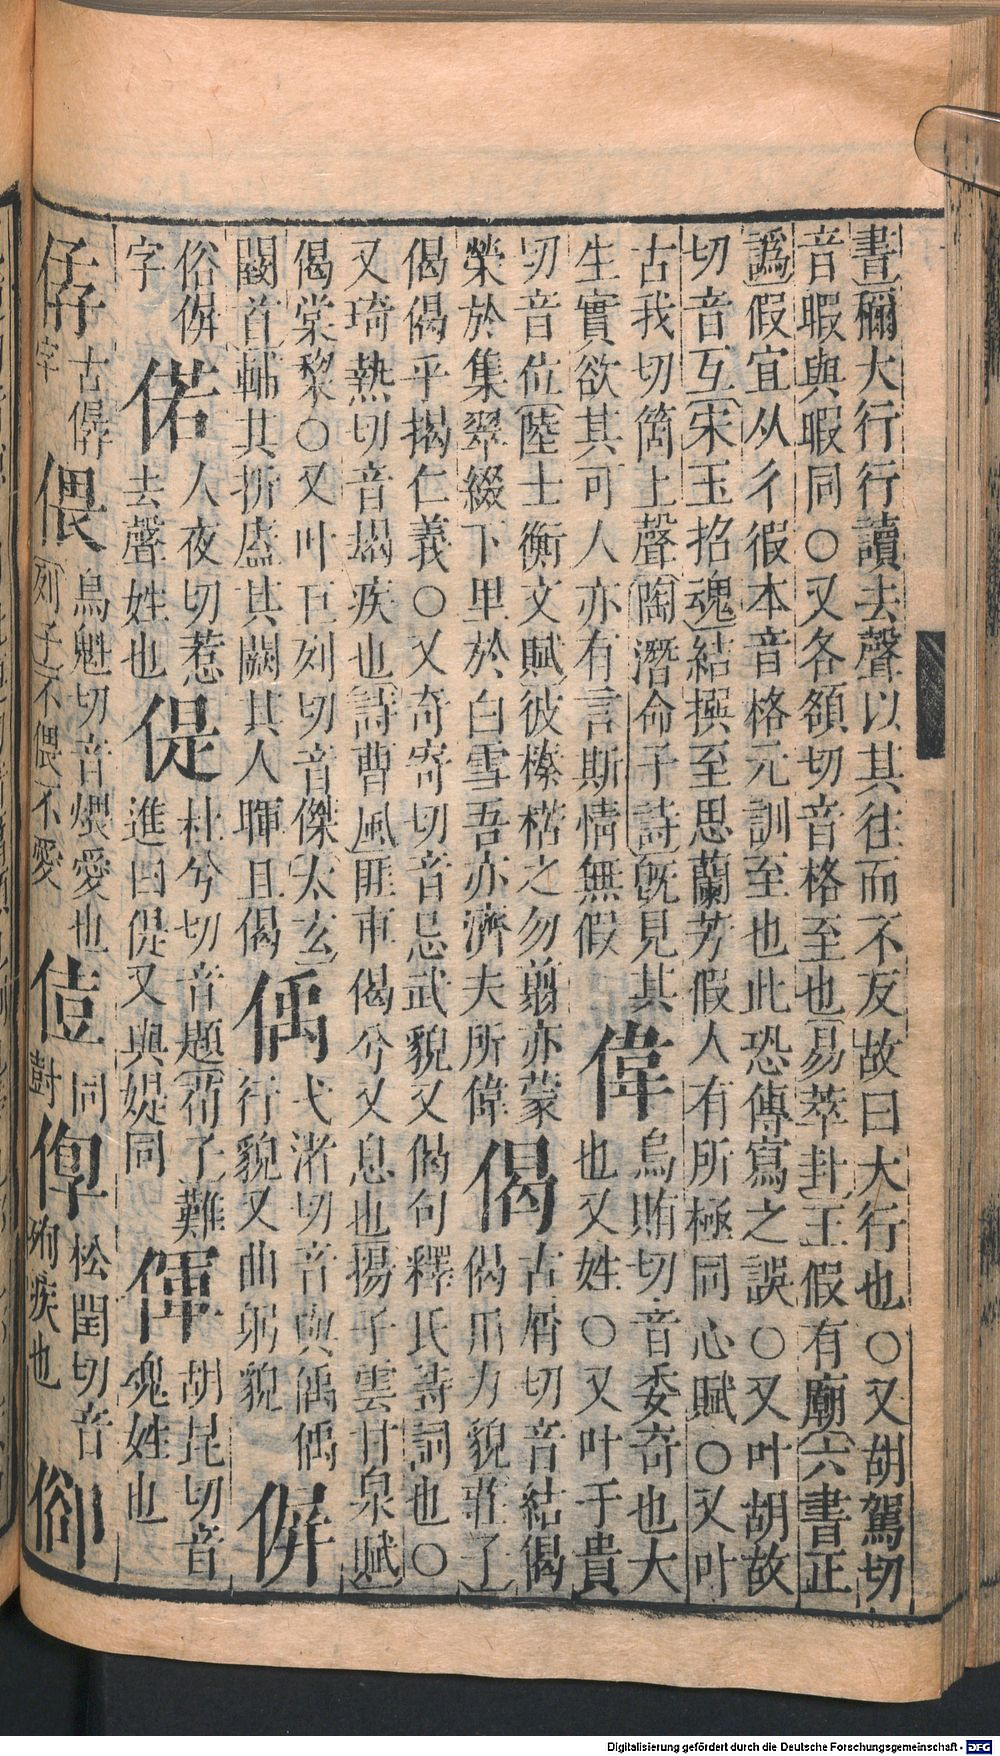 晝彌大行行讀去聲以其往而不友故曰大行也○又胡駕切
音暇與暇同○又各額切音格至也易萃卦王假有廟六書正
譌假宜从彳徦本音格元訓至也此恐傳寫之誤○又叶胡故
切音互宋玉招魂結撰至思蘭芳假人有所極同心賦○又叶
古我切箇上聲陶潛命子詩旣見其
生實欲其可人亦有言斯情無假
偉
烏賄切音委奇也大
也又姓○又叶于貴
切音位陸士衡文賦彼榛楛之勿翦亦蒙
榮於集翠綴下里於白雪吾亦濟夫所偉
偈
古屑切音結偈
偈用力貌莊子
偈偈乎揭仁義○又奇寄切音忌武貌又偈句釋氏詩詞也○
又琦熱切音朅疾也詩曹風匪車偈兮又息也揚子雲甘泉賦
偈棠黎○又叶巨列切音傑太玄
閿首輔其折盧其闕其人暉且偈
偊
弋渚切音與偊偊
行貌又曲躬貌
俗倂
字
偌
人夜切惹
去聲姓也
偍
杜兮切音題荀子難
進曰偍又與媞同
㑮
胡昆切音
魂姓也
古僝
字
偎
烏魁切音煨愛也
列子不偎不愛
同
對
松閏切音
殉疾也
Digitalisierung gefördert durch die Deutsche Forschungsgemeinschaft - DFG